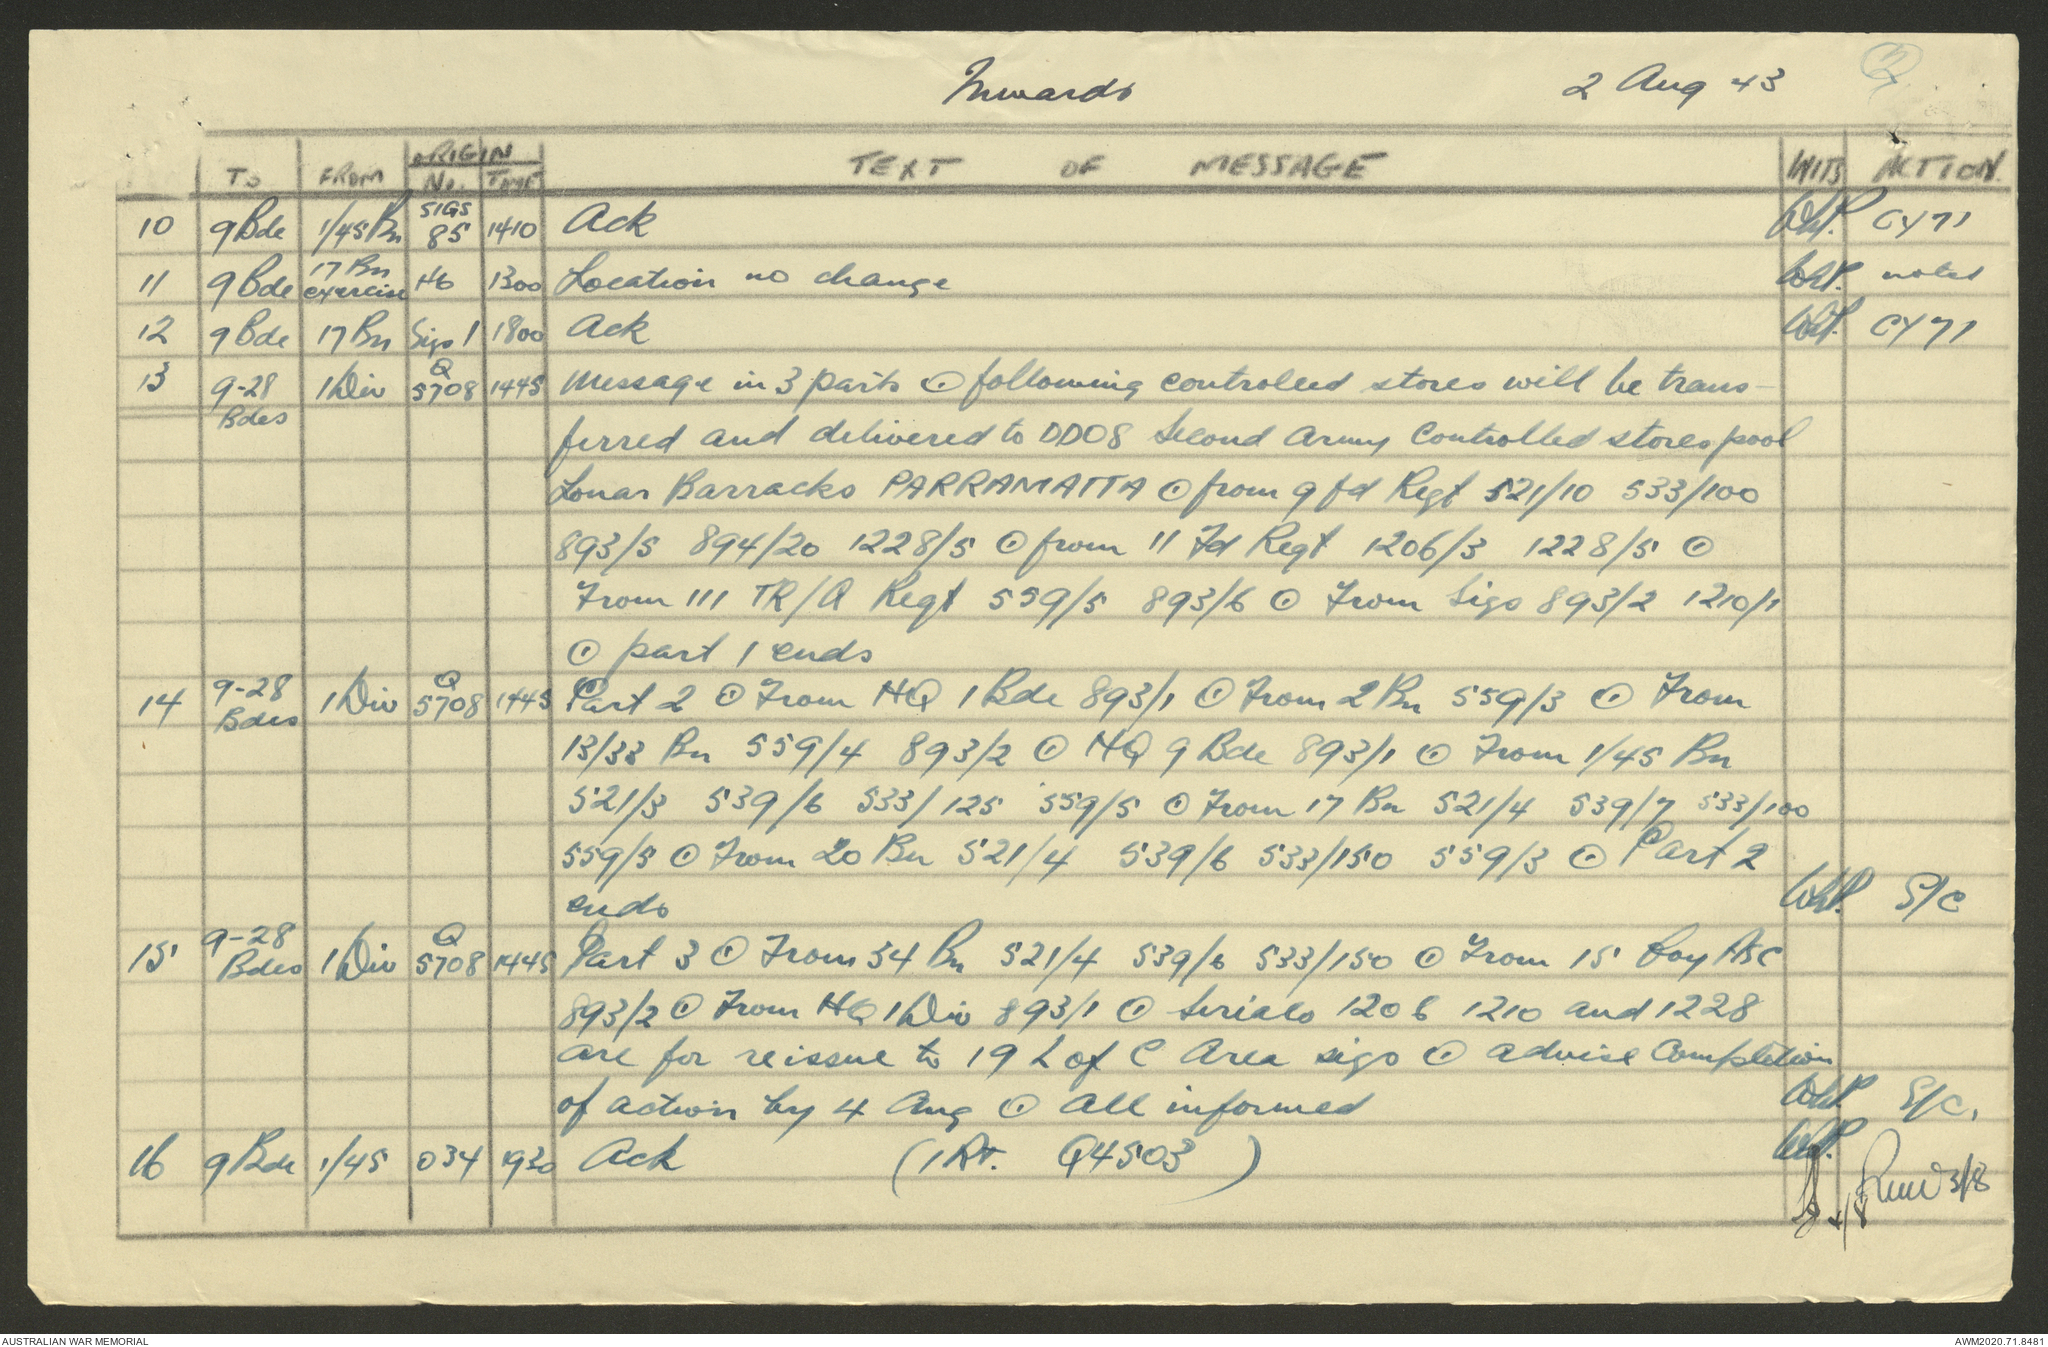 Inwards 2 Aug 43 2
TO FROM ORIGIN No. TIME TEXT OF MESSAGE INITS ACTION.
10 9 Bde 1/45 Bn SIGS 85 1410 Ack WhP. CY71
11 9 Bde 17 Bn exercise H6 1300 Location no change WhP. noted
12 9 Bde 17 Bn Sigs 1 1800 Ack WhP. CY71
13 9-28 Bdes 1 Div Q 5708 1445 Message in 3 parts ⊙ following controlled stores will be trans-
ferred and delivered to DDOS Second Army Controlled stores pool
Barracks PARRAMATTA ⊙ from 9 fd Regt 521/10 533/100
893/5 894/20 1228/5 ⊙ from 11 Fd Regt 1206/3 1228/5 ⊙
From 111 TR/A Regt 559/5 893/6 ⊙ From Sigs 893/2 1210/1
⊙ part 1 ends
14 9-28 Bdes 1 Div Q 5708 1445 Part 2 ⊙ From HQ 1 Bde 893/1 ⊙ From 2 Bn 559/3 ⊙ From
13/33 Bn 559/4 893/2 ⊙ HQ 9 Bde 893/1 ⊙ From 1/45 Bn
521/3 539/6 533/125 559/5 ⊙ From 17 Bn 521/4 539/7 533/100
559/5 ⊙ From 20 Bn 521/4 539/6 533/150 559/3 ⊙ Part 2
ends WhP. S/C
15 9-28 Bdes 1 Div Q 5708 1445 Part 3 ⊙ From 34 Bn 521/4 539/6 533/150 ⊙ From 15 Coy ASC
893/2 ⊙ From HQ 1 Div 893/1 ⊙ Serials 1206 1210 and 1228
are for reissue to 19 L of C Area sigs ⊙ advise Completion
of action by 4 Aug ⊙ All informed WhP. S/C.
16 9 Bde 1/45 034 1930 Ack (1 Rt. Q4503) WhP.
4/8 3/8
AUSTRALIAN WAR MEMORIAL AWM2020.71.8481